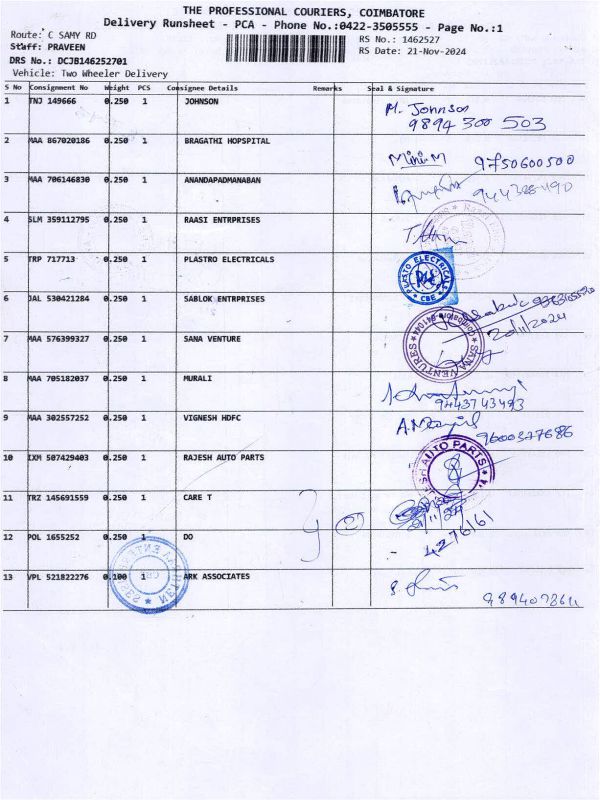 THE PROFESSIONAL COURIERS, COIMBATORE
Delivery Runsheet - PCA - Phone No.:0422-3505555 - Page No.:1
Route: C SAMY RD
RS No.: 1462527
Staff: PRAVEEN
RS Date: 21-Nov-2024
DRS No.: DCJB146252701
Vehicle: Two Wheeler Delivery
S No Consignment No Weight PCS Consignee Details Remarks Seal & Signature
1 TNJ 149666 0.250 1 JOHNSON M. Johnson
9894 300 503
2 MAA 867020186 0.250 1 BRAGATHI HOPSPITAL Mini.M 9750600500
3 MAA 706146830 0.250 1 ANANDAPADMANABAN
4 SLM 359112795 0.250 1 RAASI ENTRPRISES
5 TRP 717713 0.250 1 PLASTRO ELECTRICALS
PLASTO ELECTRICALS CBE
6 JAL 530421284 0.250 1 SABLOK ENTRPRISES
7 MAA 576399327 0.250 1 SANA VENTURE
SANA VENTURES 641044
8 MAA 705182037 0.250 1 MURALI
9443743493
9 MAA 302557252 0.250 1 VIGNESH HDFC
9600327686
10 IXM 507429403 0.250 1 RAJESH AUTO PARTS
AUTO PARTS
11 TRZ 145691559 0.250 1 CARE T
12 POL 1655252 0.250 1 DO
4276161
13 VPL 521822276 0.100 1 ARK ASSOCIATES